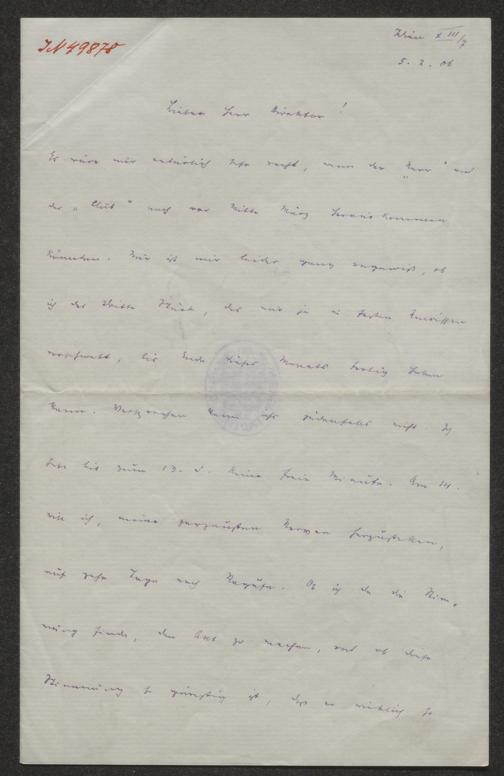 IN 49878
Wien XIII/7
5. 2. 06
Lieber Herr Direktor!
Es wäre mir natürlich sehr recht, wenn der „Narr" und
der „Club" noch vor Mitte März herauskommen
könnten. Nur ist mir leider ganz ungewiß, ob
ich das dritte Stück, das mir ja in festen Umrissen
vorschwebt, bis Ende dieses Monats fertig haben
kann. Versprechen kann ich's jedenfalls nicht. Ich
habe bis zum 13. d. keine freie Minute. Am 14.
will ich, meine zerzausten Nerven herzustellen,
auf zehn Tage nach Ragusa. Ob ich da die Stim-
mung finde, den Akt zu machen, und ob diese
Stimmung so günstig ist, daß er wirklich so